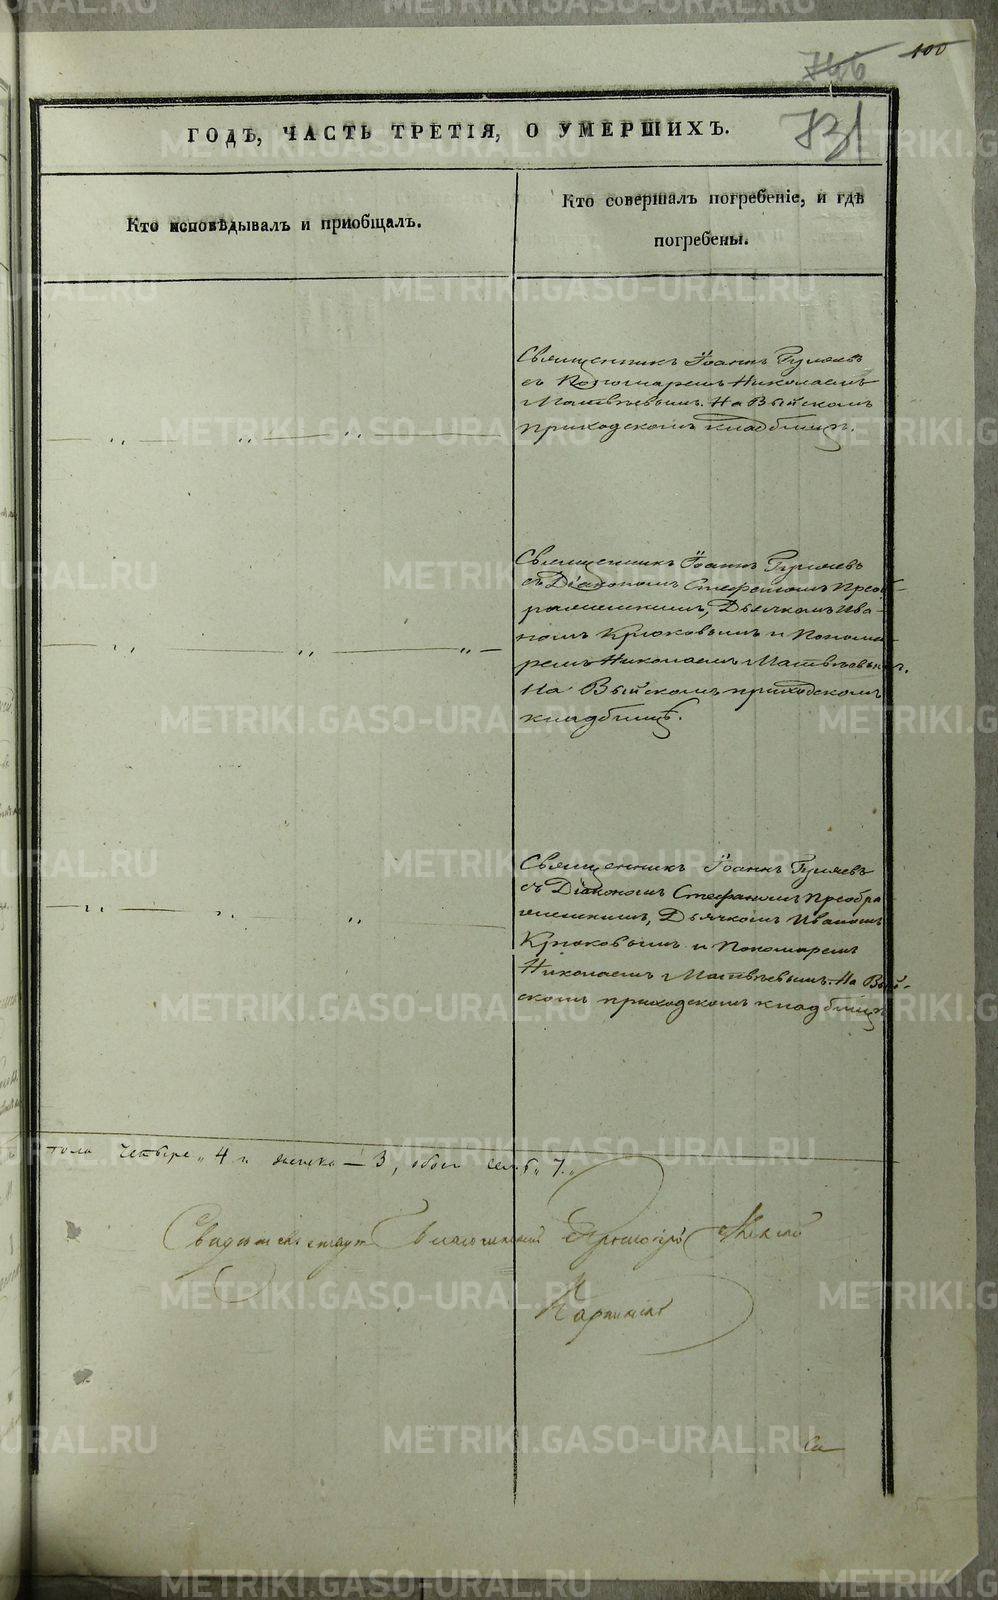 746 100
ГОДЪ, ЧАСТЬ ТРЕТІЯ, О УМЕРШИХЪ.
731
Кто исповѣдывалъ и пріобщалъ.
Кто совершалъ погребеніе, и гдѣ
погребены.
Священникъ Іоаннъ Гуляевъ
съ Пономаремъ Николаемъ
Матвѣевымъ. На Выйскомъ
приходскомъ кладбищѣ.
Священникъ Іоаннъ Гуляевъ
съ Діакономъ Стефаномъ Преоб-
раженскимъ, Дьячкомъ Ива-
номъ Крюковымъ и Понома-
ремъ Николаемъ Матвѣевымъ.
На Выйскомъ приходскомъ
кладбищѣ.
Священникъ Іоаннъ Гуляевъ
съ Діакономъ Стефаномъ Преобра
женскимъ, Дьячкомъ Иваномъ
Крюковымъ и Пономаремъ
Николаемъ Матвѣевымъ. На Вый-
скомъ приходскомъ кладбищѣ
пола четыре „ 4 и женска — 3, обоего семь „ 7 „
Свидѣтельствуетъ Благочинный
METRIKI.GASO-URAL.RU